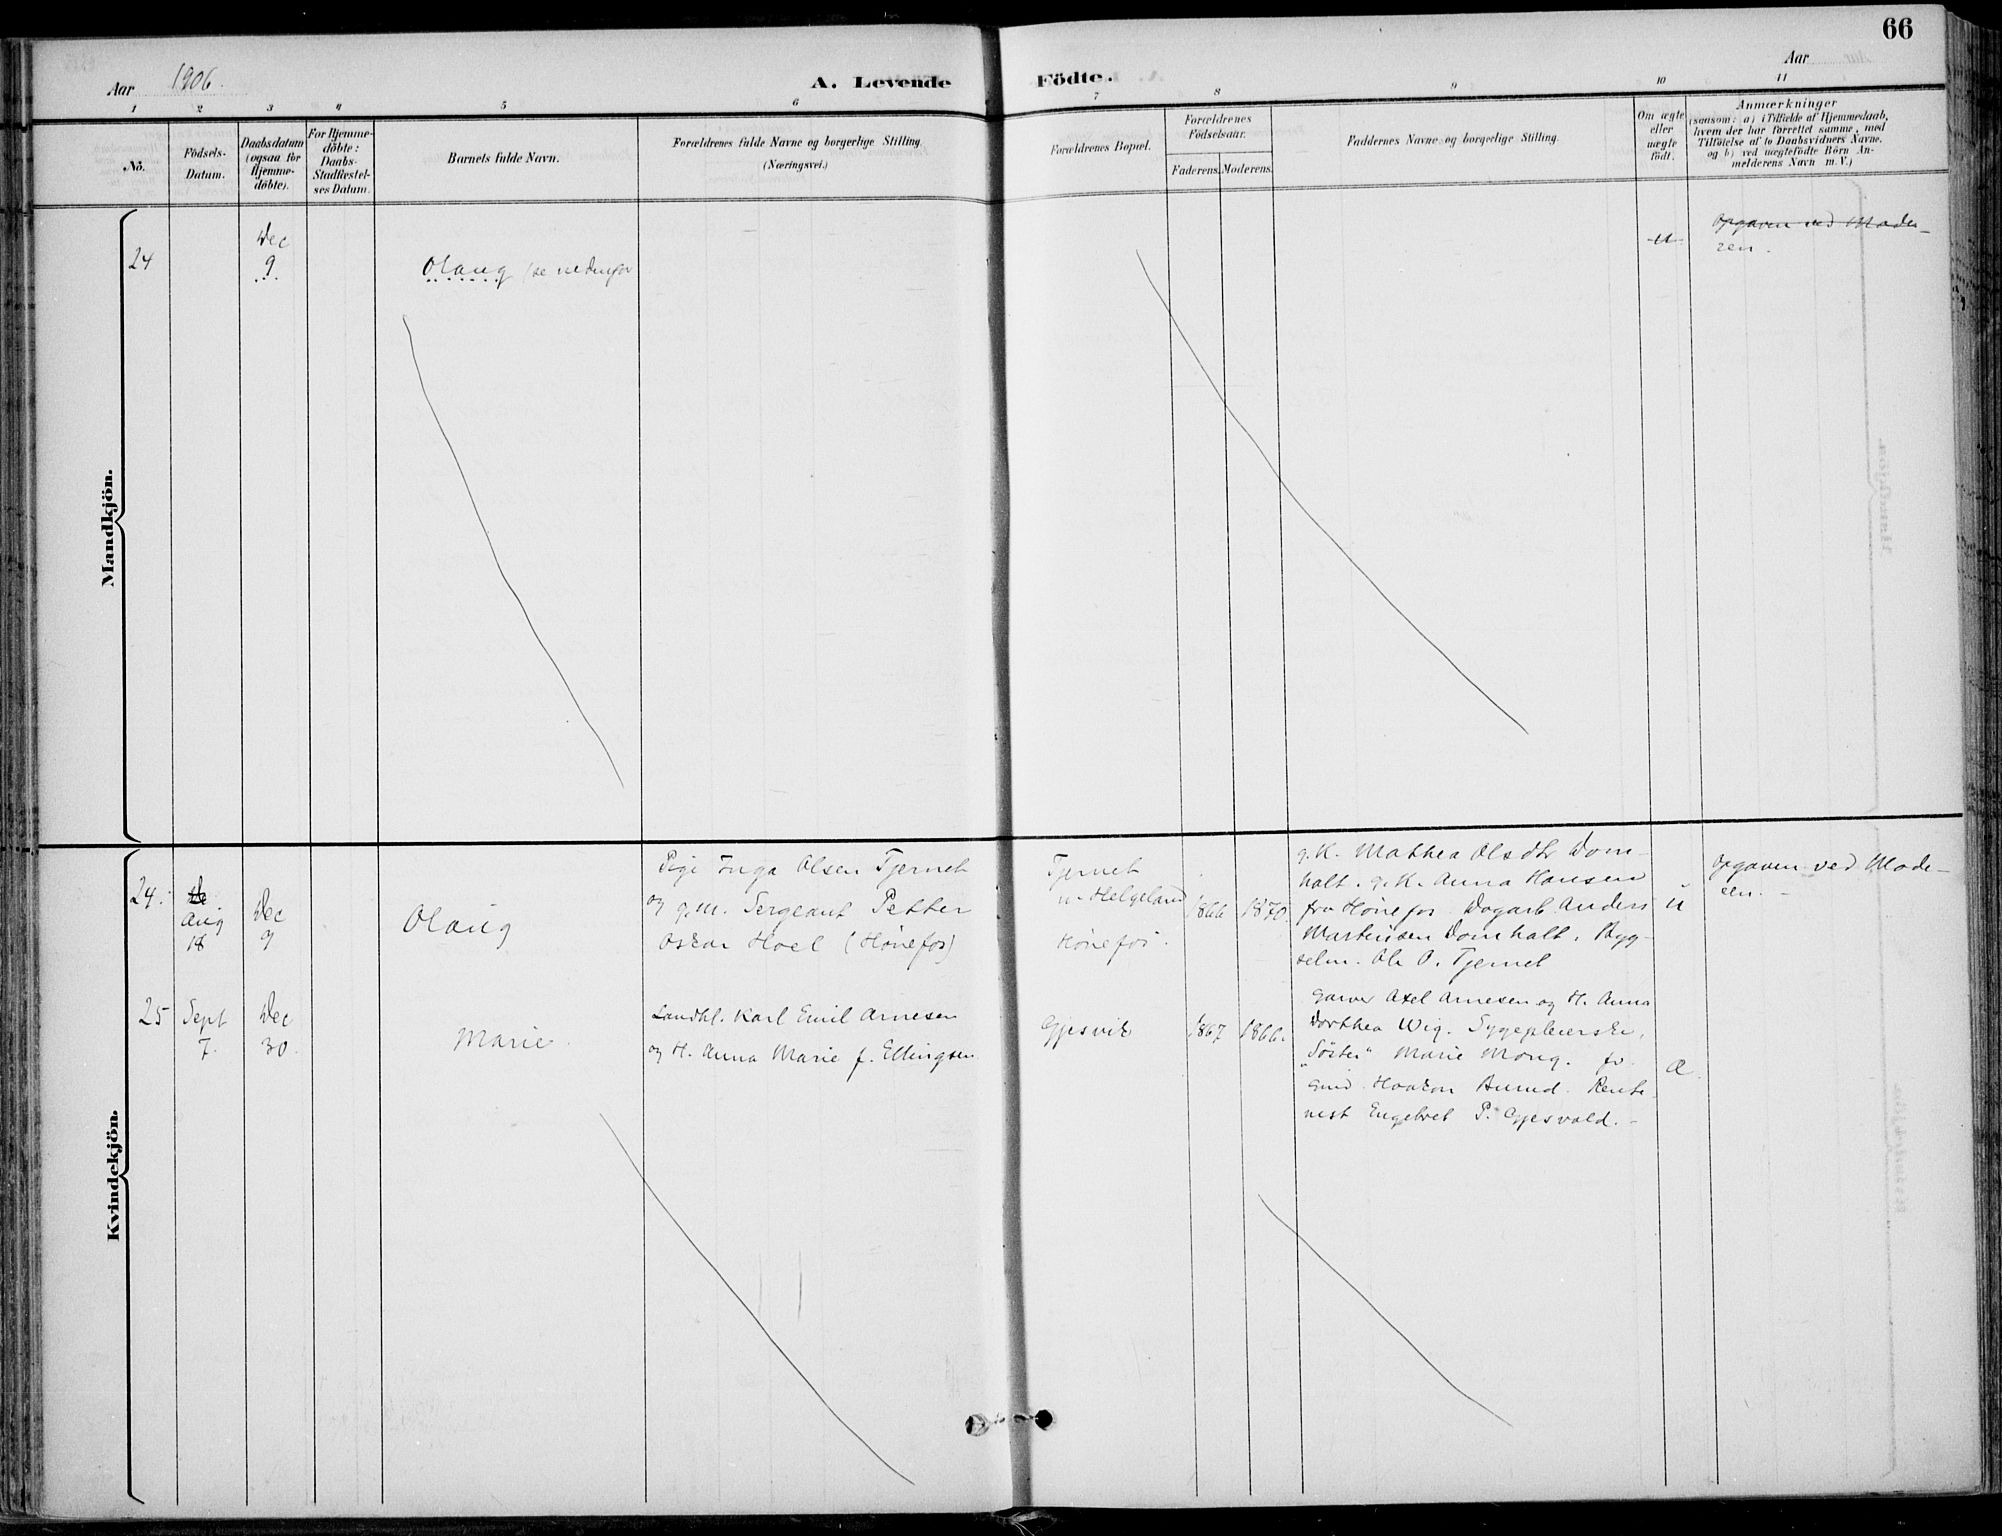 66
Aar 1906.
A. Levende Födte.
Aar
1 2 3 4 5 6 7 8 9 10 11
No.
Födsels-
Datum.
Daabsdatum
(ogsaa for
Hjemme-
döbte).
For Hjemme-
döbte:
Daabs-
Stadfæstel-
ses Datum.
Barnets fulde Navn.
Forældrenes fulde Navne og borgerlige Stilling
(Næringsvei.)
Forældrenes Bopæl.
Forældrenes
Födselsaar.
Faderens. Moderens.
Faddernes Navne og borgerlige Stilling.
Om ægte
eller
uægte
født.
Anmærkninger
(saasom: a) i Tilfælde af Hjemmedaab,
hvem der har forrettet samme, med
Tilföielse af to Daabsvidners Navne.
og b) ved uægtefödte Börn An-
melderens Navn m.V.)
Mandkjön.
24
Dec
9
Olaug (se nedenfor
u
Opgaven ved Mode-
ren.
Kvindekjön.
24.
De
Aug
18
Dec
9
Olaug
Pige Inga Olsen Tjernet
og g.m. Sergeant Petter
Oskar Hoel (Hönefos)
Tjernet
u. Helgeland
Hönefos.
1866
1870.
g. K. Mathea Olsdtr Dom-
holt. g. K. Anna Hansen
fra Hönefos. Dagarb. Anders
Martinsen Domholt. Byg-
selm. Ole O. Tjernet
u
Opgaven ved Mode-
ren. -
25
Sept
7.
Dec
30.
Marie.
Landhl. Karl Emil Arnesen
og H. Anna Marie f. Ellingsen
Gjesvik
1867
1866.
Garver Axel Arnesen og H. Anna
Dorthea Wig. Sygepleierske,
"Söster" Marie Mong. fr.
Gmd. Haakon Burud. Rente-
nist Engebret P. Gjesvold. -
Æ.